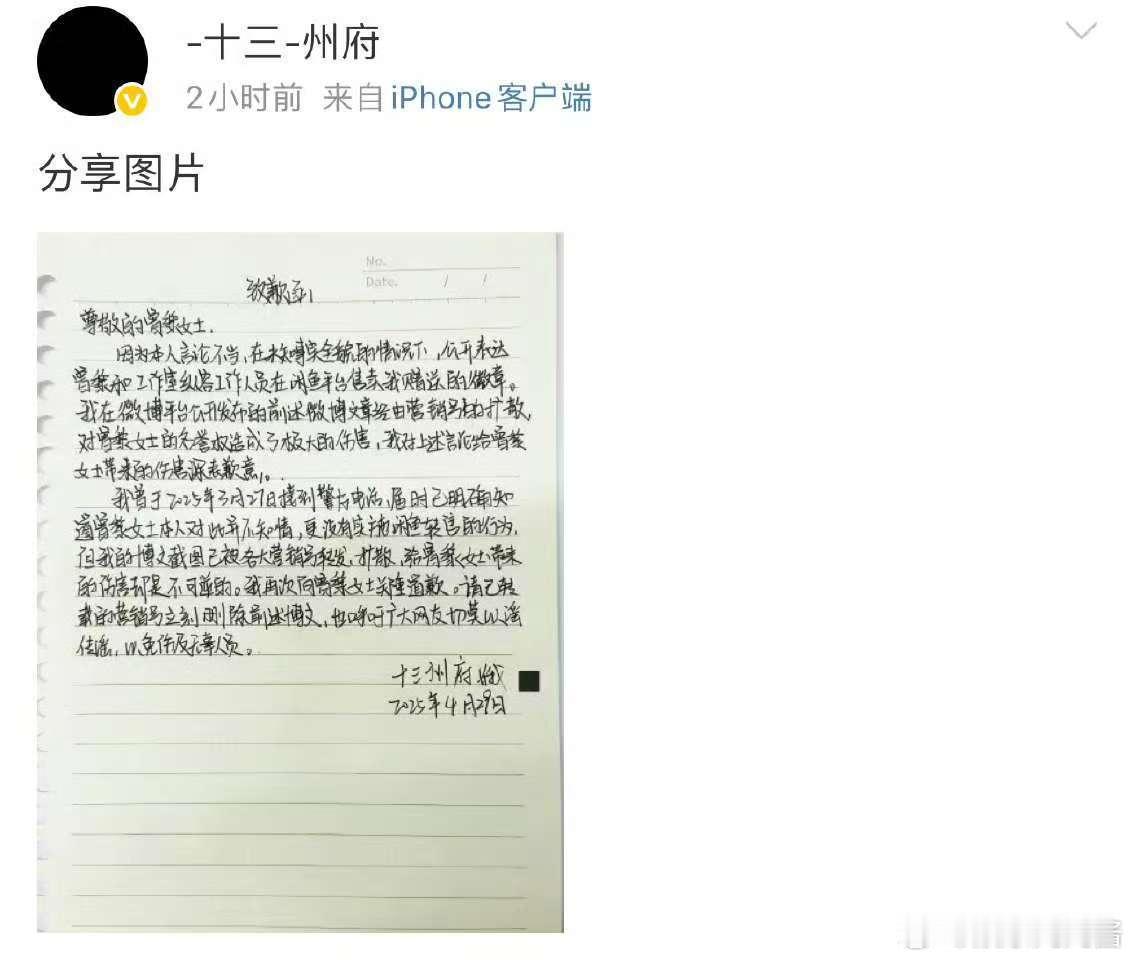 -十三-州府
2小时前 来自 iPhone客户端
分享图片
No.
Date. / /
致歉函
尊敬的曾黎女士,
因为本人言论不当,在未搞清完全貌的情况下,公开表达
曾黎和工作室纵容工作人员在闲鱼平台售卖我赠送的徽章。
我在微博平台公开发布的前述微博文章经由营销号的扩散,
对曾黎女士的名誉权造成了极大的伤害,我对上述言论给曾黎
女士带来的伤害深表歉意。
我曾于2025年3月27日接到警方电话,届时已明确知
道曾黎女士本人对此并不知情,更没有实施闲鱼转售的行为,
但我的博文截图已被各大营销号转发、扩散,给曾黎女士带来
的伤害却是不可逆的。我再次向曾黎女士郑重道歉。请已转
载的营销号立刻删除前述博文,也呼吁广大网友切莫以谣
传谣,以免伤及无辜人员。
十三州府
2025年4月29日